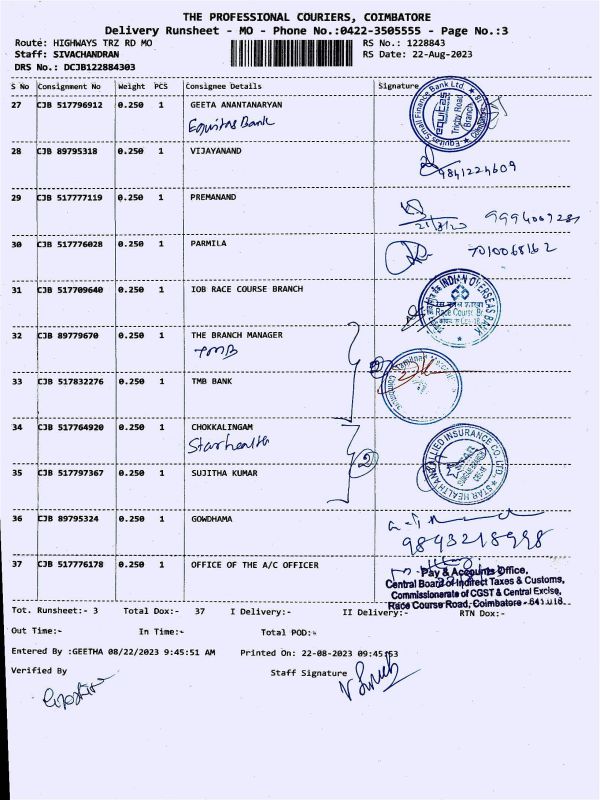 THE PROFESSIONAL COURIERS, COIMBATORE
Delivery Runsheet - MO - Phone No.:0422-3505555 - Page No.:3
Route: HIGHWAYS TRZ RD MO RS No.: 1228843
Staff: SIVACHANDRAN RS Date: 22-Aug-2023
DRS No.: DCJB122884303
S No Consignment No Weight PCS Consignee Details Signature
27 CJB 517796912 0.250 1 GEETA ANANTANARYAN
Equitas Bank
Equitas Small Finance Bank Ltd.
equitas
Trichy Road
Branch
28 CJB 89795318 0.250 1 VIJAYANAND
9841224609
29 CJB 517777119 0.250 1 PREMANAND
30 CJB 517776028 0.250 1 PARMILA
7010068162
31 CJB 517709640 0.250 1 IOB RACE COURSE BRANCH
INDIAN OVERSEAS BANK
32 CJB 89779670 0.250 1 THE BRANCH MANAGER
TMB
33 CJB 517832276 0.250 1 TMB BANK
2
34 CJB 517764920 0.250 1 CHOKKALINGAM
Starhealth
STAR HEALTH AND ALLIED INSURANCE CO. LTD.
35 CJB 517797367 0.250 1 SUJITHA KUMAR
2
36 CJB 89795324 0.250 1 GOWDHAMA
9843218998
37 CJB 517776178 0.250 1 OFFICE OF THE A/C OFFICER
Pay & Accounts Office,
Central Board of Indirect Taxes & Customs,
Commissionerate of CGST & Central Excise,
Race Course Road, Coimbatore - 641 018.
Tot. Runsheet:- 3 Total Dox:- 37 I Delivery:- II Delivery:- RTN Dox:-
Out Time:- In Time:- Total POD:-
Entered By :GEETHA 08/22/2023 9:45:51 AM Printed On: 22-08-2023 09:45:53
Verified By Staff Signature